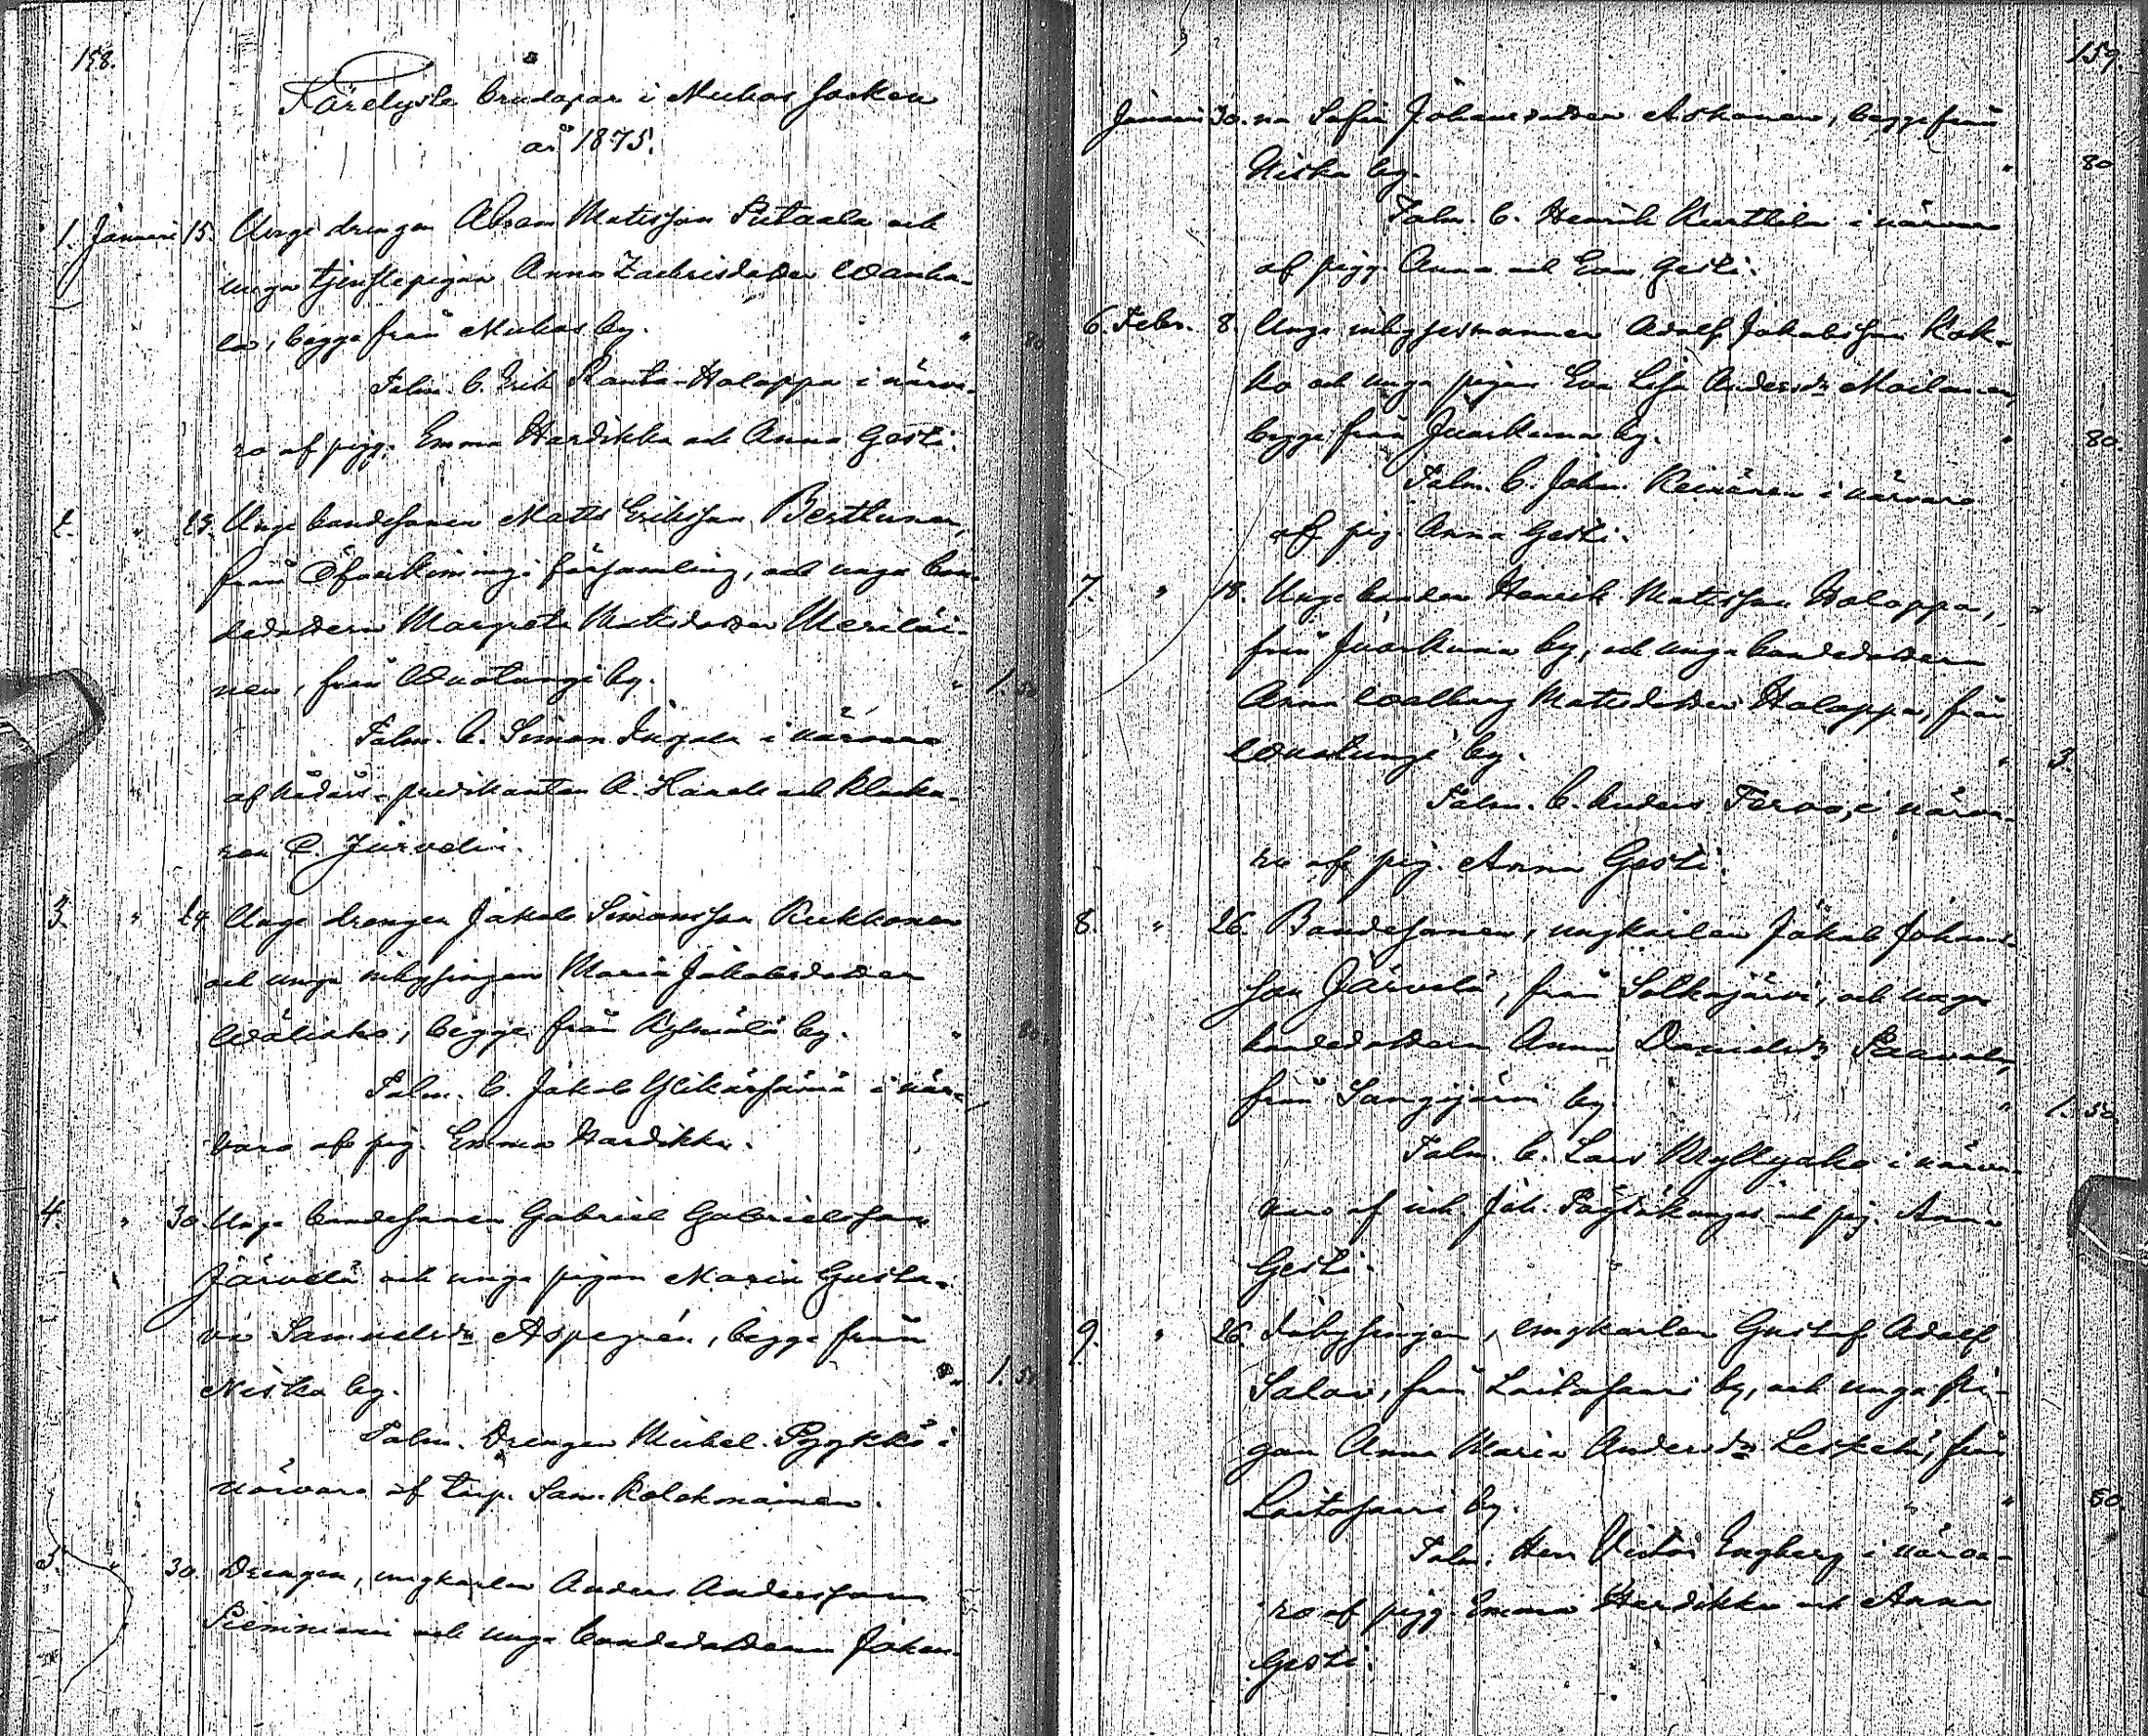 158.
Förelyste Brudapar i Muhos Socken
år 1875.
1. Januari 15. Unge drengen Abram Matsson Pietaala och
unga tjenstepigan Anna Zachrisdotter Wanha-
la, begge från Muhos by. " 80
Talm. b. Erik Ranta-Holappa i närva-
ro af pigg. Emma Hardikka och Anna Gesti.
2. " 23. Unge bondesonen Matts Eriksson Berttunen,
från Öfverkiminge församling, och unga bon-
dedottern Margreta Matsdotter Meriläi-
nen, från Wuotungi by. " 1.50
Talm. b. Simon i närvaro
af nådårs-predikanten A. och klocka-
ren C. Järvelin.
3. " 24. Unge drengen Jakob Simonsson Kukkonen
och unga inhysingen Maria Jakobsdotter
Wälikko, begge från Kylmälä by. " 80.
Talm. b. Jakob Ylikärsämä i när-
varo af pig. Emma Hardikka.
4. " 30. Unge bondesonen Gabriel Gabrielsson
Järvelä och unga pigan Maria Gusta-
va Samuelsdr Aspegrén, begge från
Niska by. " 1.50
Talm. Drengen Mickel Pyykkö i
närvaro af torp. Sam. Kolokmainen.
5. " 30. Drengen, ungkarlen Anders Andersson
och unga bondedottern Johan-
159.
Januari 30. na Sofia Johansdotter Askonen, begge från
Niska by. " 80
Talm. b. Henrik Kurttila i närvaro
af pigg. Anna och Eva Gesti.
6. Febr. 8. Unge inhysesmannen Adolf Jakobsson Kok-
ko och unga pigan Eva Lisa Andersdr Moilanen,
begge från Juorkuna by. " 80.
Talm. b. Johan Keinänen i närvaro
af pig. Anna Gesti.
7. " 18. Unge bonden Henrik Matsson Holappa,
från Juorkuna by, och unga bondedottern
Anna Walborg Matsdotter Holappa, från
Wuotungi by. " 3.
Talm. b. Anders Tervo, i närva-
ro af pig. Anna Gesti.
8. " 26. Bondesonen, ungkarlen Jakob Johans-
son Järvelä, från Soikajärvi, och unga
bondedottern Anna Danielsdr Paavola,
från Sangijärvi by. " 1.50
Talm. b. Lars Myllyaho i närva-
varo af inh. Joh. och pig. Anna
Gesti.
9. " 26. Inhysingen, ungkarlen Gustaf Adolf
Salov, från Laitasaari by, och unga pi-
gan Anna Maria Andersdr Leskelä, från
Laitasaari by. " 80.
Talm. Herr Victor Engberg i närva-
ro af pigg. Emma Hardikka och Anna
Gesti.